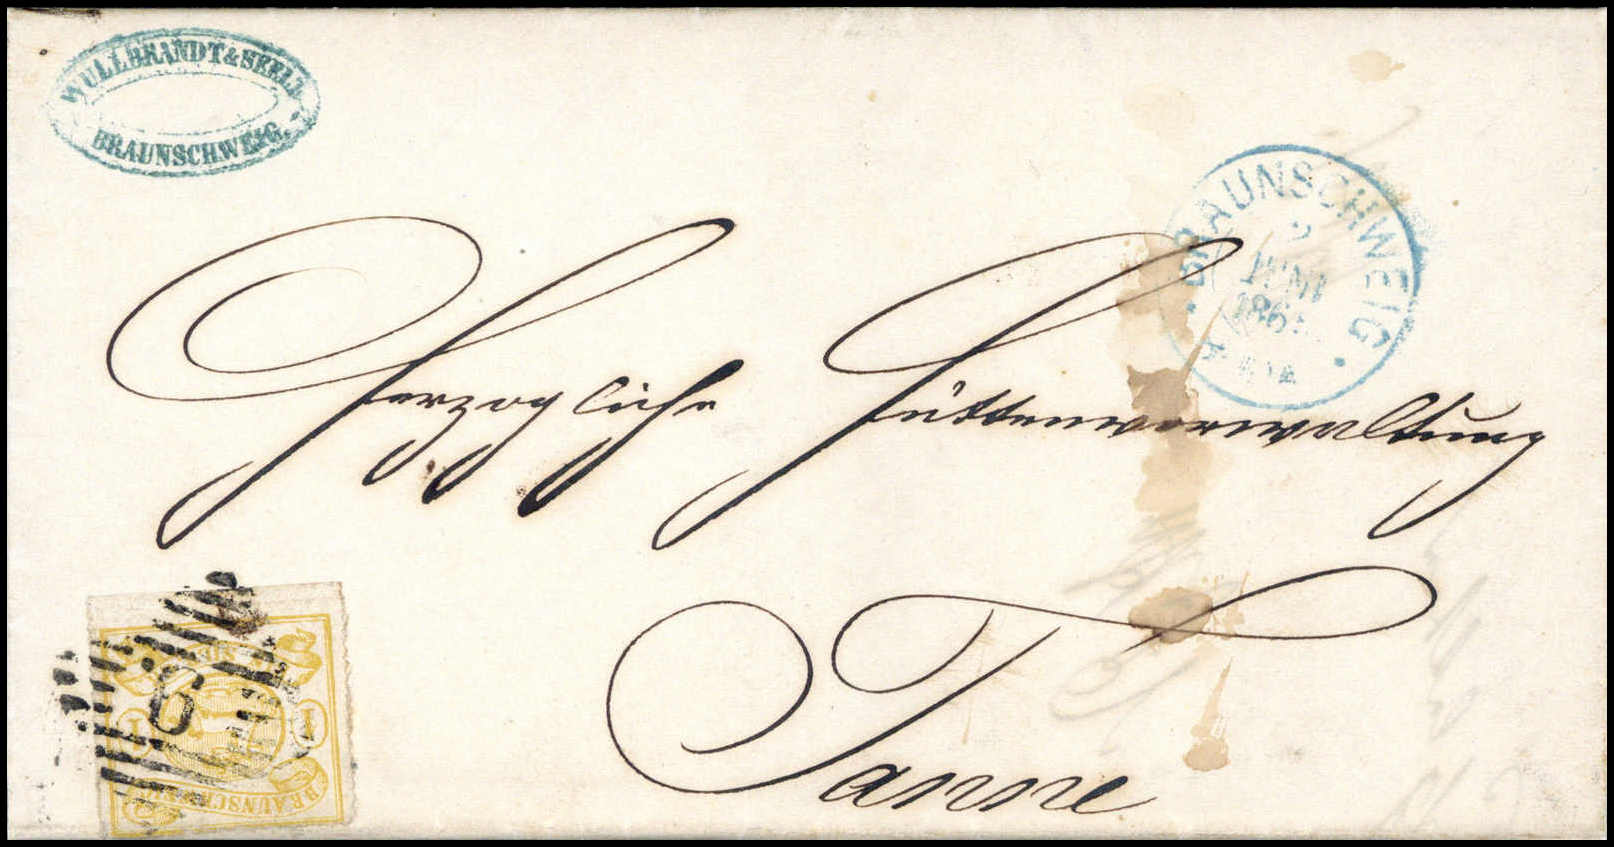 WULLBRANDT & SEELE
BRAUNSCHWEIG.
BRAUNSCHWEIG
JUNI
Herzogliche Hüttenverwaltung
Tanne
6
1 1
BRAUNSCHWEIG